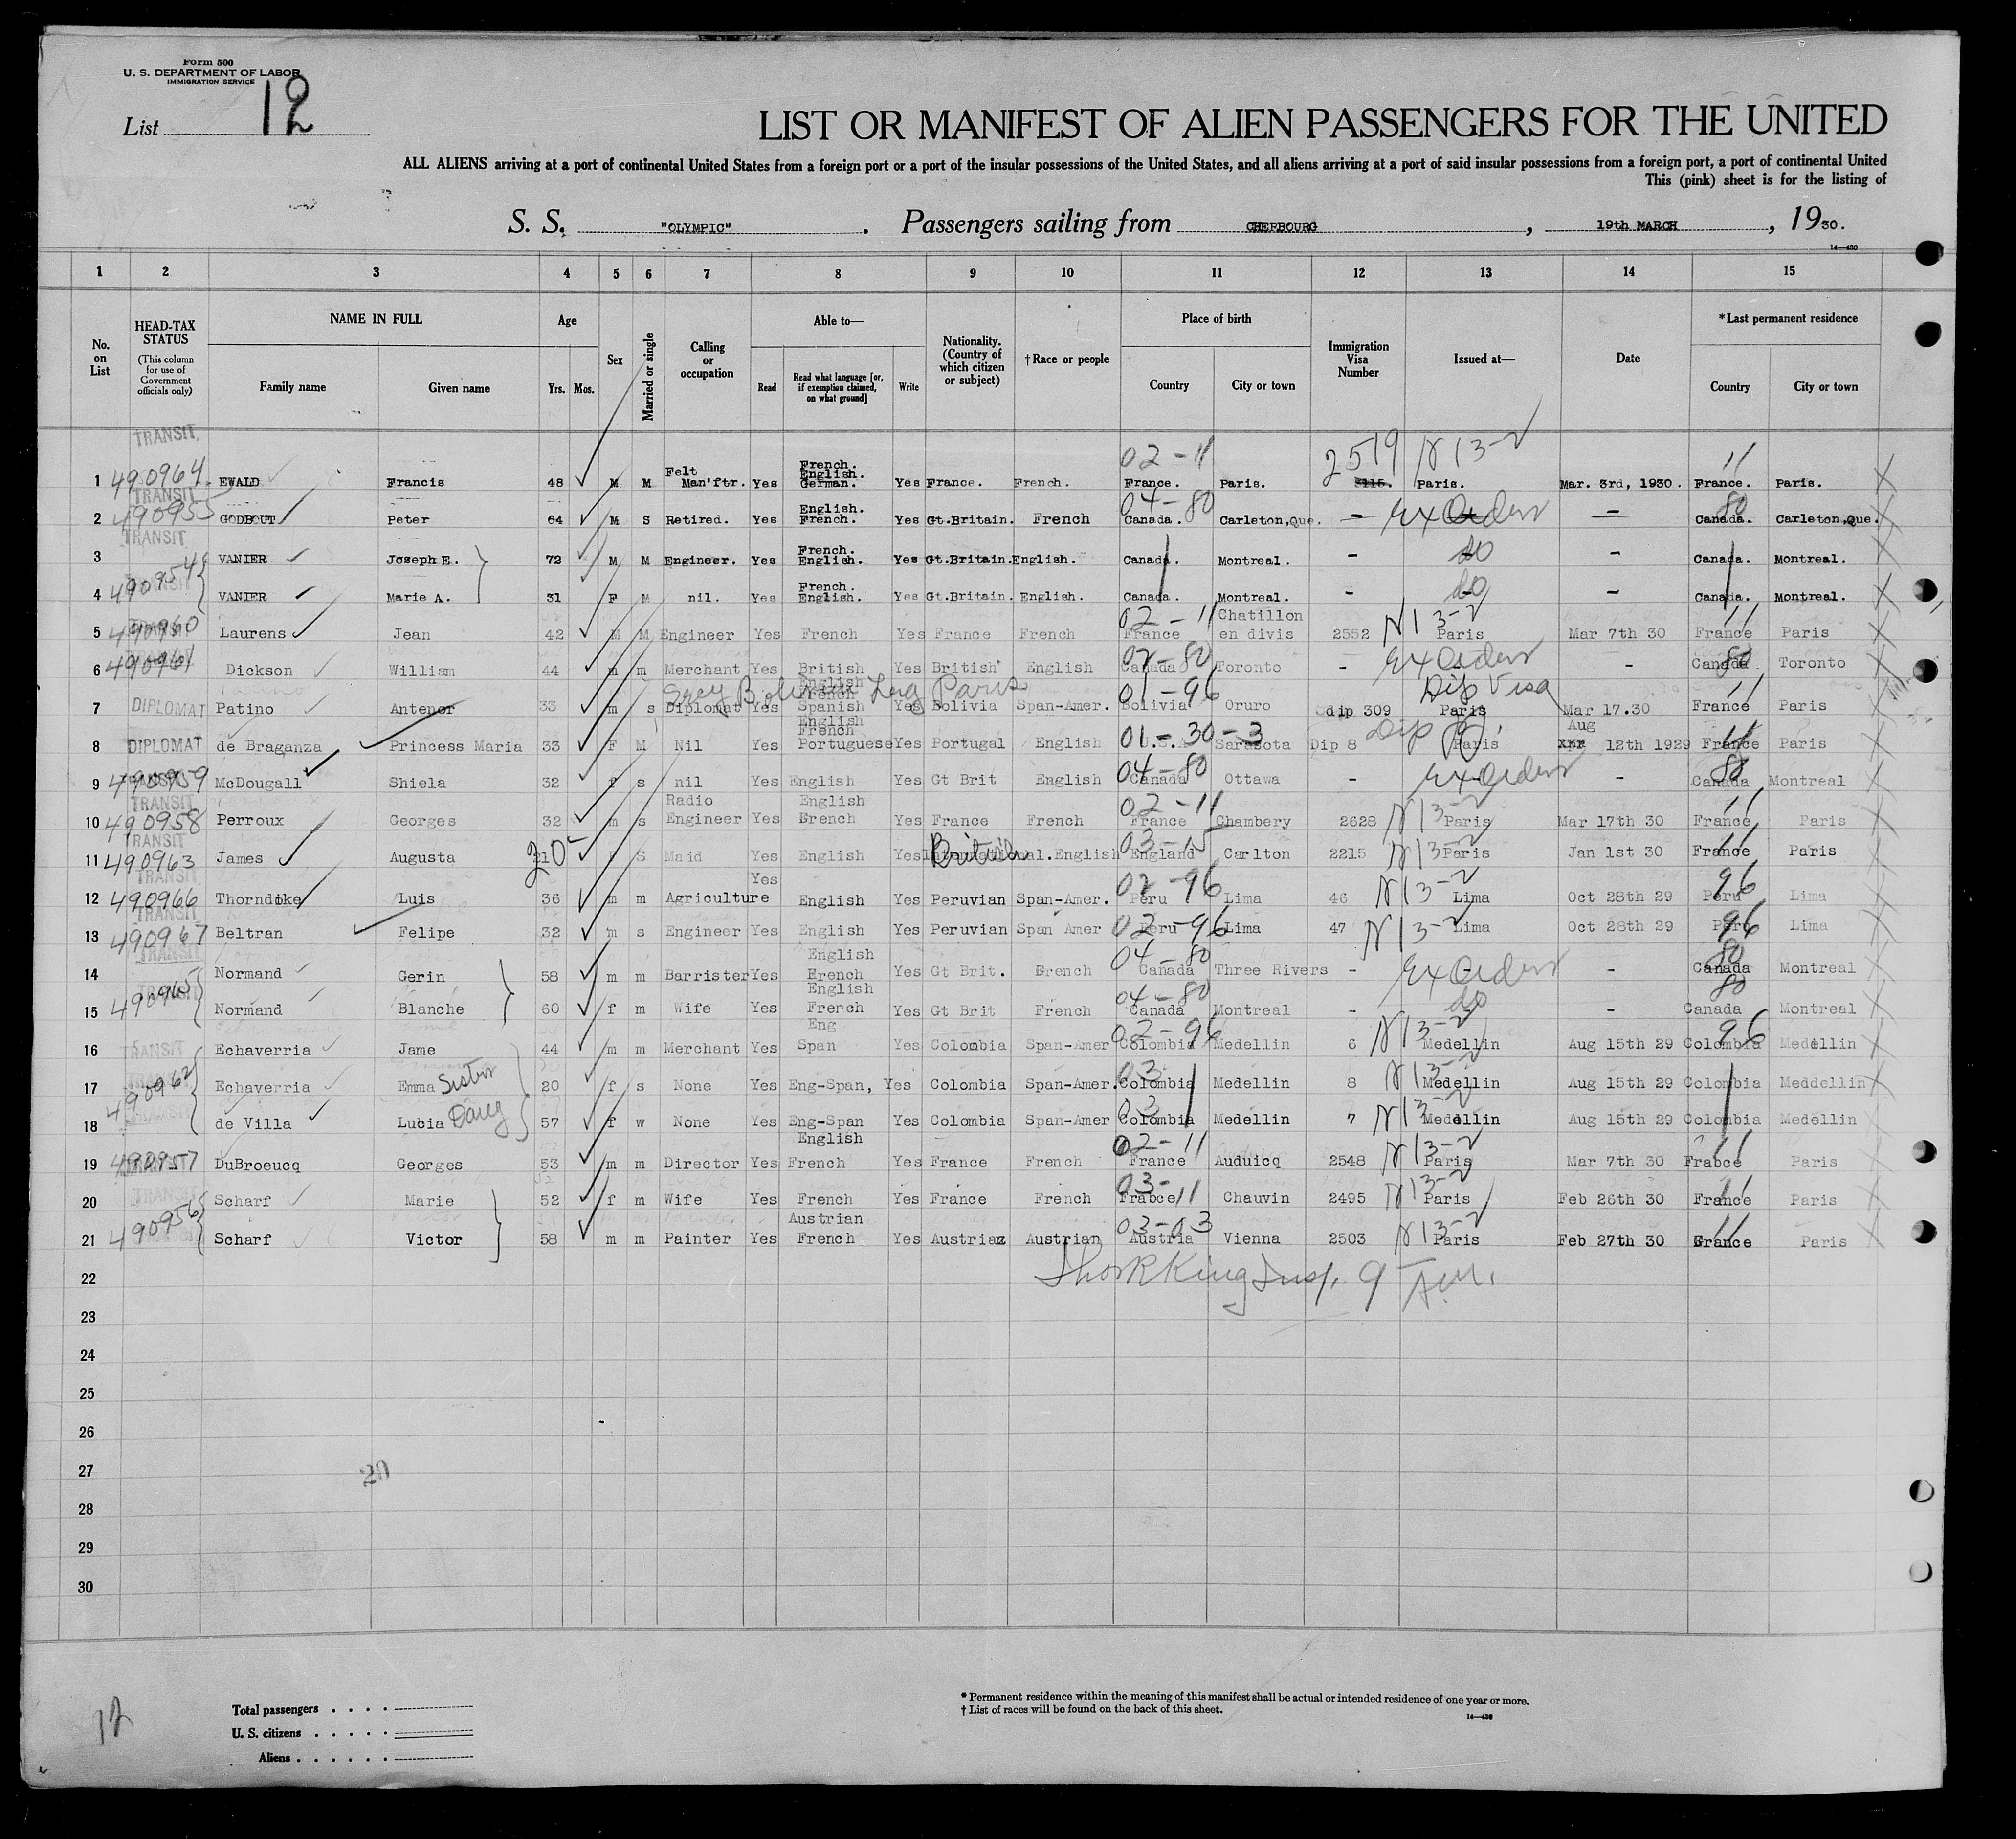 Form 500
U. S. DEPARTMENT OF LABOR
IMMIGRATION SERVICE
List 12
LIST OR MANIFEST OF ALIEN PASSENGERS FOR THE UNITED
ALL ALIENS arriving at a port of continental United States from a foreign port or a port of the insular possessions of the United States, and all aliens arriving at a port of said insular possessions from a foreign port, a port of continental United
This (pink) sheet is for the listing of
S. S. "OLYMPIC". Passengers sailing from CHERBOURG, 19th MARCH, 1930.
14—430
1 2 3 4 5 6 7 8 9 10 11 12 13 14 15
No. on List
HEAD-TAX STATUS (This column for use of Government officials only)
NAME IN FULL Family name Given name
Age Yrs. Mos.
Sex
Married or single
Calling or occupation
Able to— Read Read what language [or, if exemption claimed, on what ground] Write
Nationality. (Country of which citizen or subject)
†Race or people
Place of birth Country City or town
Immigration Visa Number
Issued at—
Date
*Last permanent residence Country City or town
TRANSIT 02-11 2519 N13-2 11
1 490964 EWALD Francis 48 M M Felt Man'ftr. Yes French. English. German. Yes France. French. France. Paris. Paris. Mar. 3rd, 1930. France. Paris.
TRANSIT 04-80 80
2 490955 GODBOUT Peter 64 M S Retired. Yes English. French. Yes Gt.Britain. French Canada. Carleton,Que. — Ex Orders — Canada. Carleton,Que.
TRANSIT
3 VANIER Joseph E. 72 M M Engineer. Yes French. English. Yes Gt.Britain. English. Canada. Montreal. - do - Canada. Montreal.
4 490954 VANIER Marie A. 31 F M nil. Yes French. English. Yes Gt.Britain. English. Canada. Montreal. - do - Canada. Montreal.
02-11 N13-2 11
5 490960 Laurens Jean 42 M M Engineer Yes French Yes France French France Chatillon en divis 2552 Paris Mar 7th 30 France Paris
02-80 Ex Orders 80
6 490961 Dickson William 44 m m Merchant Yes British Yes British English Canada Toronto - - Canada Toronto
Secy Bolivian Leg Paris 01-96 Dip Visa 11
7 DIPLOMAT Patino Antenor 33 m s Diplomat Yes English French Spanish Yes Bolivia Span-Amer. Bolivia Oruro dip 309 Paris Mar 17.30 France Paris
01-30-3 Dip 11
8 DIPLOMAT de Braganza Princess Maria 33 F M Nil Yes English French Portuguese Yes Portugal English Sarasota Dip 8 Paris Aug 12th 1929 France Paris
04-80 Ex Orders 80
9 490959 McDougall Shiela 32 f s nil Yes English Yes Gt Brit English Canada Ottawa - - Canada Montreal
TRANSIT 02-11 N13-2 11
10 490958 Perroux Georges 32 m s Radio Engineer Yes English French Yes France French France Chambery 2628 Paris Mar 17th 30 France Paris
TRANSIT 20 British 03-15 N13-2 11
11 490963 James Augusta S Maid Yes English Yes English England Carlton 2215 Paris Jan 1st 30 France Paris
TRANSIT 02-96 N13-2 96
12 490966 Thorndike Luis 36 m m Agriculture Yes English Yes Peruvian Span-Amer. Peru Lima 46 Lima Oct 28th 29 Peru Lima
TRANSIT 02-96 N13-2 96
13 490967 Beltran Felipe 32 m s Engineer Yes English Yes Peruvian Span Amer Peru Lima 47 Lima Oct 28th 29 Peru Lima
TRANSIT 04-80 Ex Orders 80
14 Normand Gerin 58 m m Barrister Yes English French Yes Gt Brit. French Canada Three Rivers - - Canada Montreal
04-80 do 80
15 490965 Normand Blanche 60 f m Wife Yes English French Yes Gt Brit French Canada Montreal - - Canada Montreal
02-96 N13-2 96
16 TRANSIT Echaverria Jame 44 m m Merchant Yes Eng Span Yes Colombia Span-Amer Colombia Medellin 6 Medellin Aug 15th 29 Colombia Medellin
03 N13-2
17 490962 Echaverria Emma Sister 20 f s None Yes Eng-Span, Yes Colombia Span-Amer. Colombia Medellin 8 Medellin Aug 15th 29 Colombia Meddellin
03 N13-2
18 de Villa Lubia Daug 57 f w None Yes Eng-Span Yes Colombia Span-Amer Colombia Medellin 7 Medellin Aug 15th 29 Colombia Medellin
02-11 N13-2 11
19 490957 DuBroeucq Georges 53 m m Director Yes English French Yes France French France Auduicq 2548 Paris Mar 7th 30 Frabce Paris
TRANSIT 03-11 N13-2 11
20 Scharf Marie 52 f m Wife Yes French Yes France French Frabce Chauvin 2495 Paris Feb 26th 30 France Paris
03-03 N13-2 11
21 490956 Scharf Victor 58 m m Painter Yes Austrian French Yes Austrian Austria Vienna 2503 Paris Feb 27th 30 France Paris
22
23
24
25
26
27 20
28
29
30
12
Total passengers
U. S. citizens
Aliens
* Permanent residence within the meaning of this manifest shall be actual or intended residence of one year or more.
† List of races will be found on the back of this sheet.
14—430